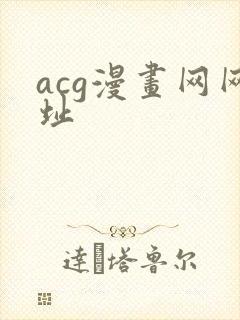 acg漫畫网网
址
達 塔鲁尔